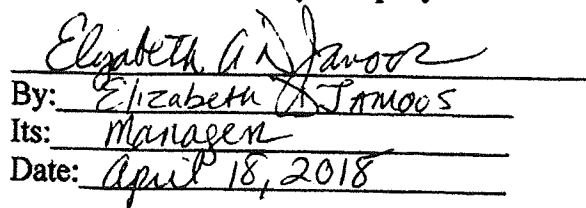 Elizabeth A
By: Elizabeth A JAMOOS
Its: Manager
Date: April 18, 2018